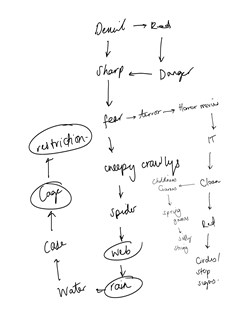 Pencil → Red
Sharp ← Danger
fear → terror → Horror movies
restriction
IT
creepy crawlys
Childrens
Games
Clown
Cage
spider
silly
string
Red
web
Case
Codes/
stop
signs.
Water
rain